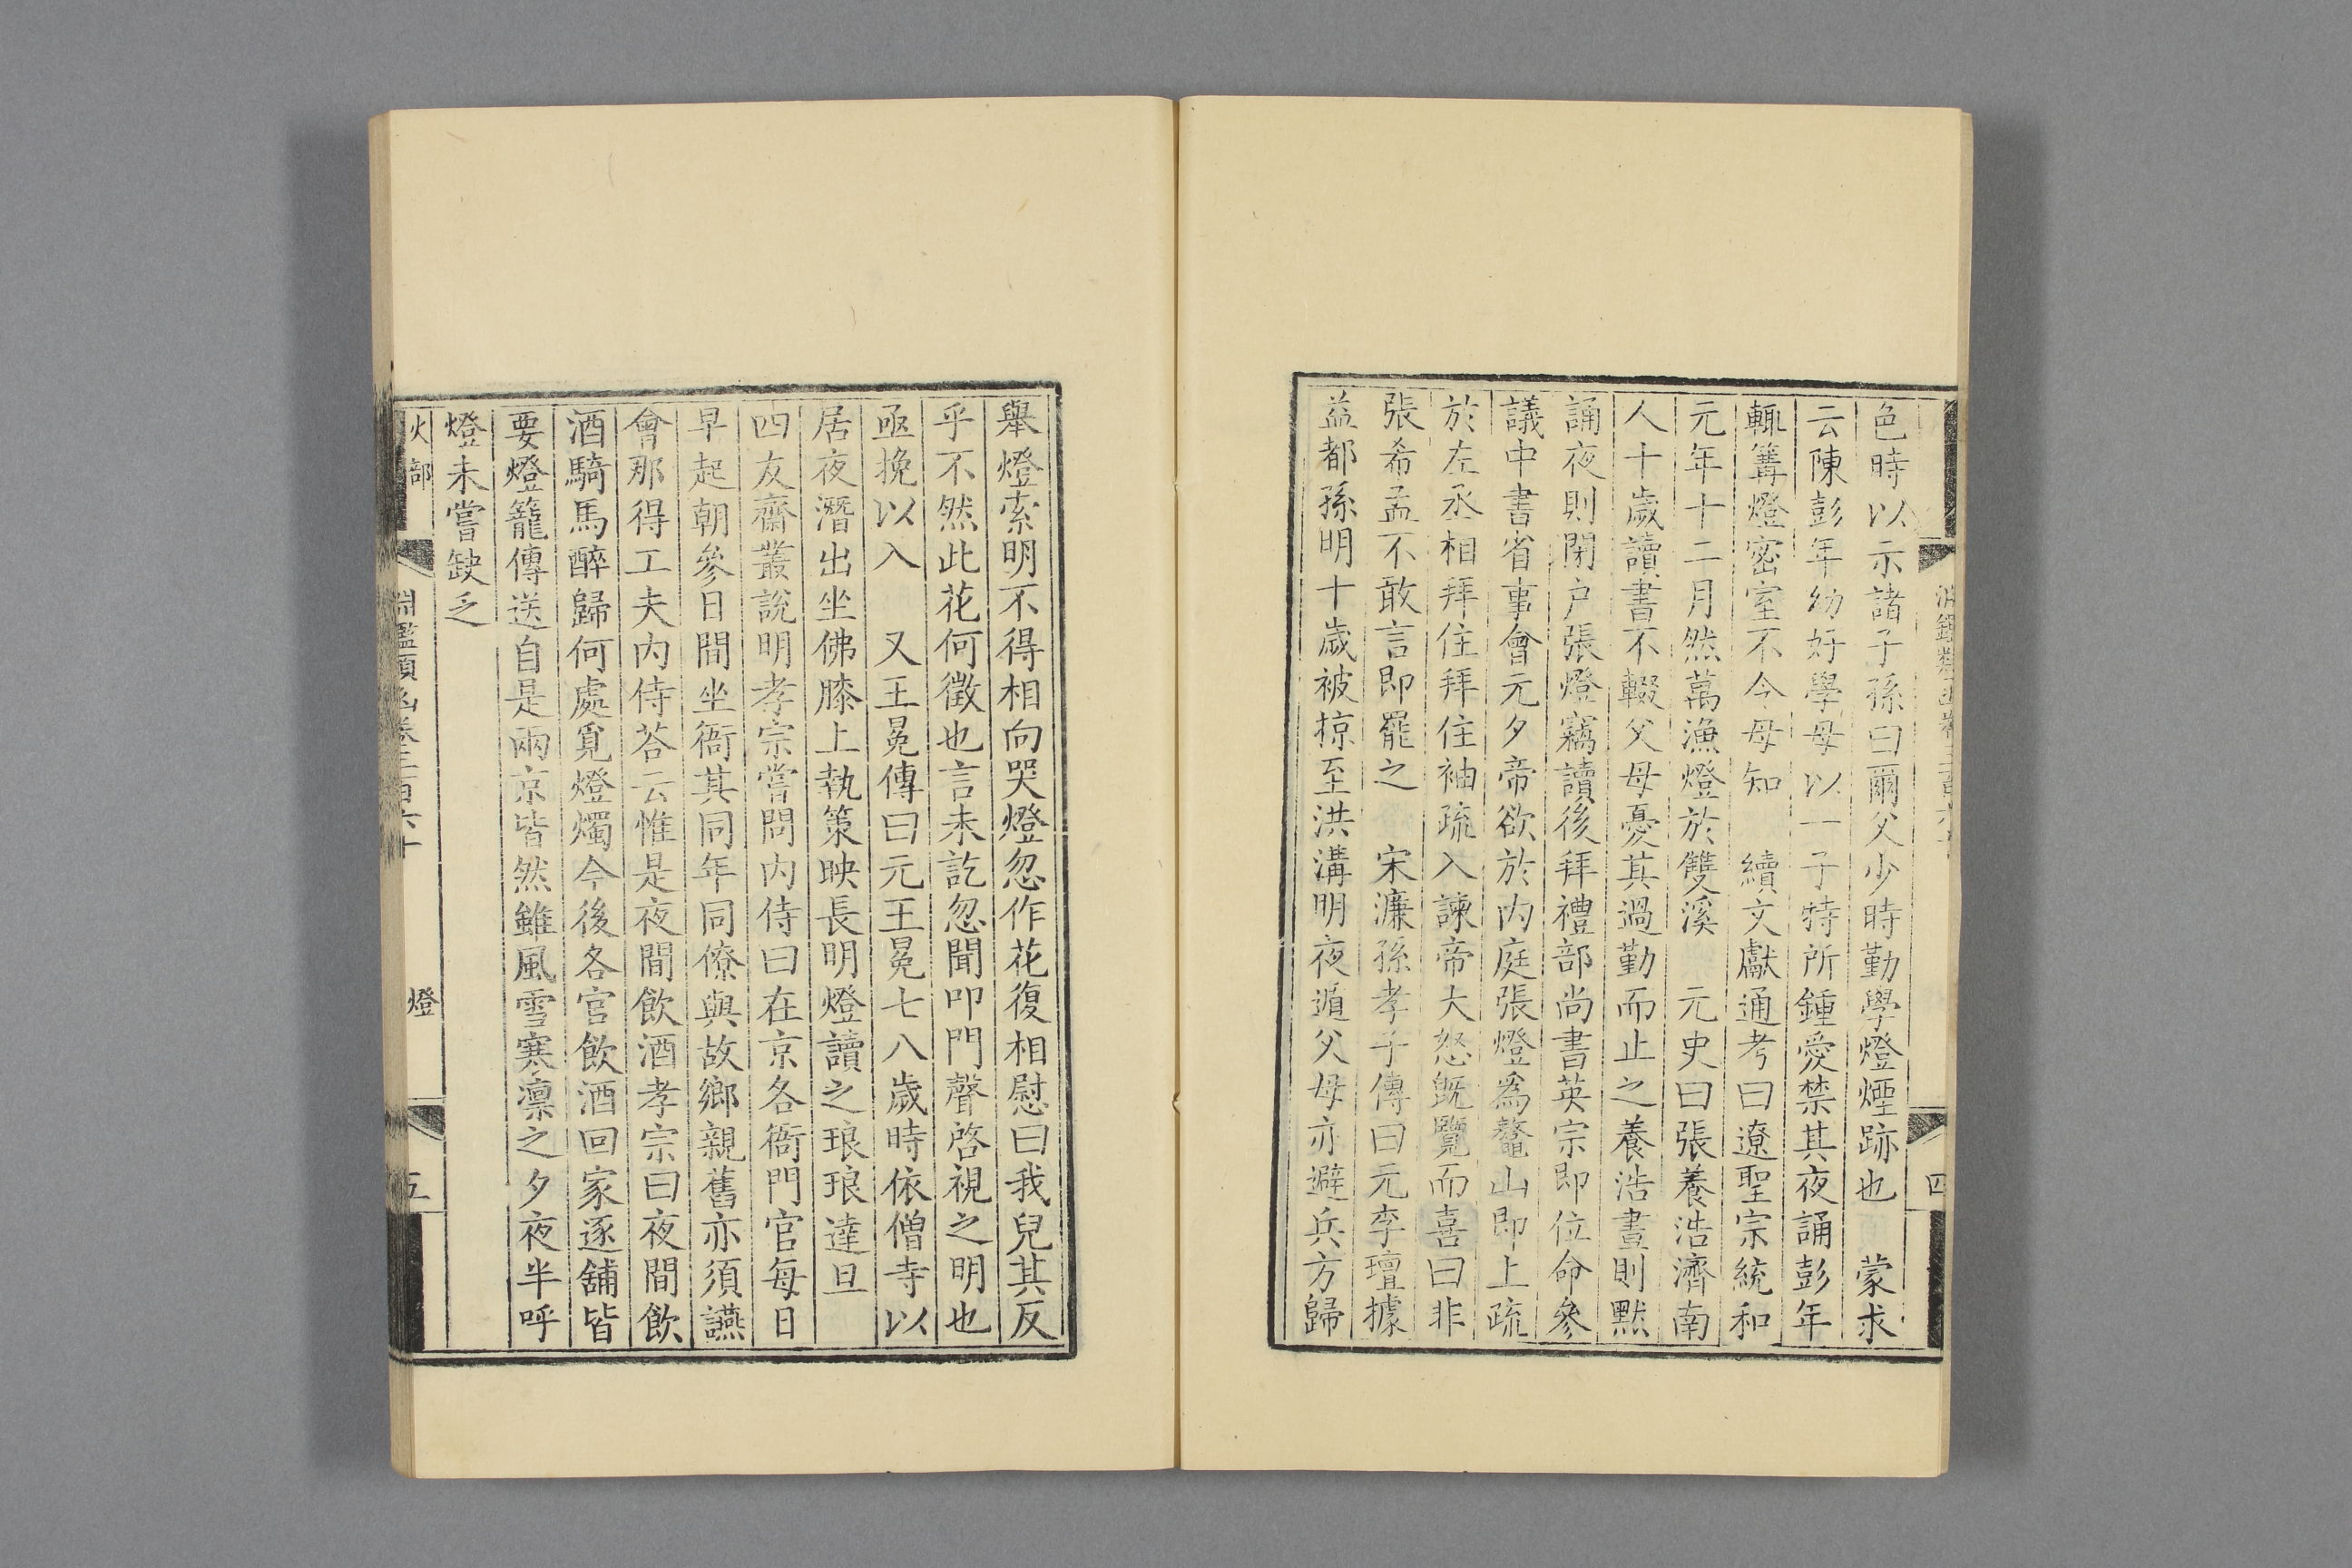 淵鑑類函卷三百六十
四
色時以示諸子孫曰爾父少時勤學燈煙跡也　蒙求
云陳彭年幼好學母以一子特所鍾愛禁其夜誦彭年
輒篝燈密室不令母知　續文獻通考曰遼聖宗統和
元年十二月然萬漁燈於雙溪　元史曰張養浩濟南
人十歲讀書不輟父母憂其過勤而止之養浩晝則默
誦夜則閉户張燈竊讀後拜禮部尚書英宗即位命參
議中書省事會元夕帝欲於内庭張燈爲鼇山即上疏
於左丞相拜住拜住袖疏入諫帝大怒既覽而喜曰非
張希孟不敢言即罷之　宋濂孫孝子傳曰元李璮據
益都孫明十歲被掠至洪溝明夜遁父母亦避兵方歸
舉燈索明不得相向哭燈忽作花復相慰曰我兒其反
乎不然此花何徵也言未訖忽聞叩門聲啓視之明也
亟挽以入　又王冕傳曰元王冕七八歲時依僧寺以
居夜潛出坐佛膝上執策映長明燈讀之琅琅達旦
四友齋叢說明孝宗嘗問内侍曰在京各衙門官每日
早起朝參日間坐衙其同年同僚與故鄉親舊亦須讌
會那得工夫内侍荅云惟是夜間飲酒孝宗曰夜間飲
酒騎馬醉歸何處覓燈燭今後各官飲酒回家逐舖皆
要燈籠傳送自是兩京皆然雖風雪寒凛之夕夜半呼
燈未嘗缺乏
火部
淵鑑類函卷三百六十
燈
五